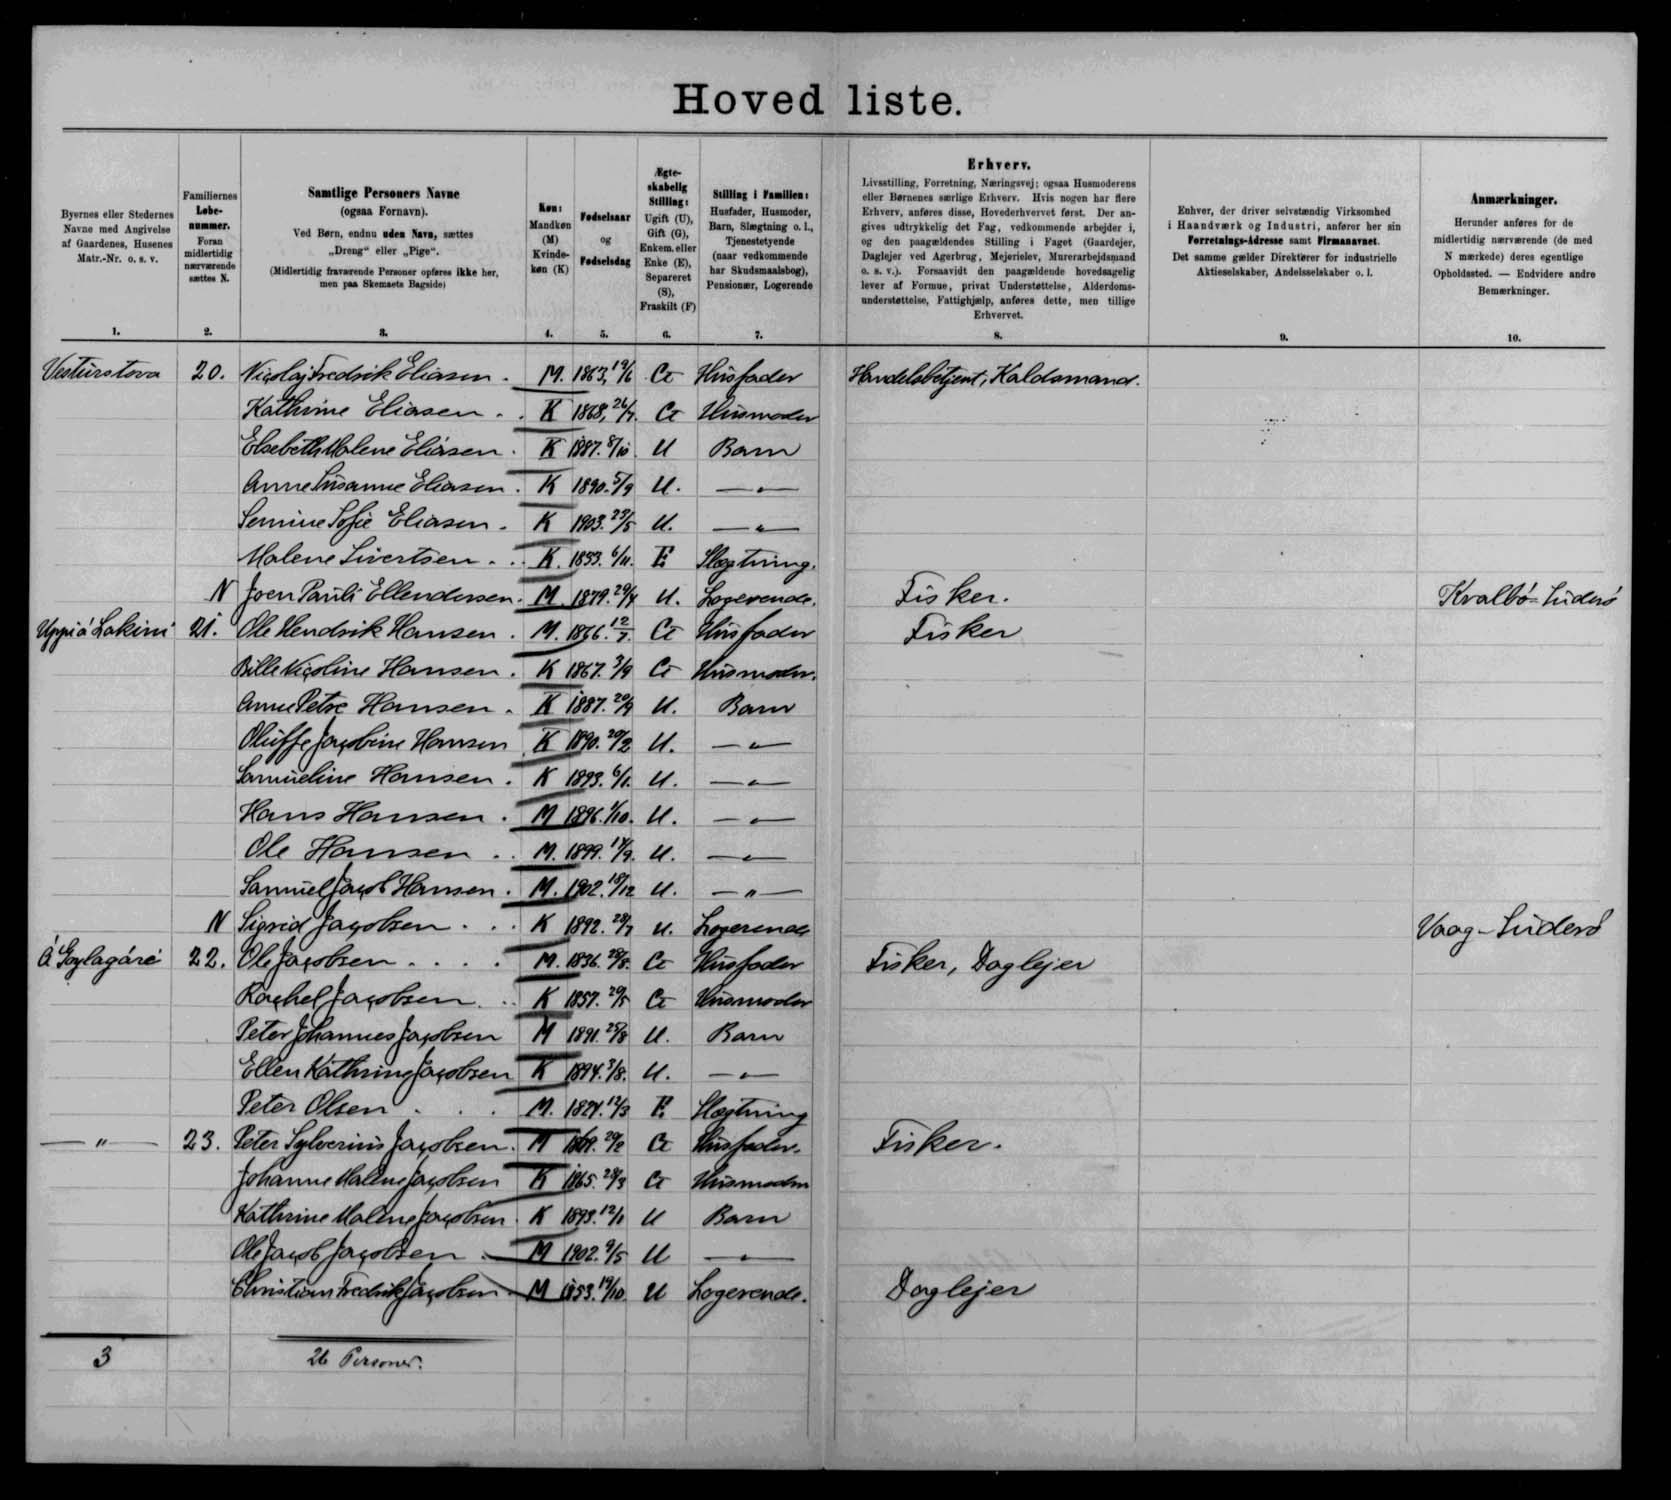 Hoved liste.
Byernes eller Stedernes
Navne med Angivelse
af Gaardenes, Husenes
Matr.-Nr. o. s. v.
1.
Familiernes
Løbe-
nummer.
Foran
midlertidig
nærværende
sættes N.
2.
Samtlige Personers Navne
(ogsaa Fornavn).
Ved Børn, endnu uden Navn, sættes
„Dreng“ eller „Pige“.
(Midlertidig fraværende Personer opføres ikke her,
men paa Skemaets Bagside)
3.
Køn:
Mandkøn
(M)
Kvinde-
køn (K)
4.
Fødselsaar
og
Fødselsdag
5.
Ægte-
skabelig
Stilling:
Ugift (U),
Gift (G),
Enkem. eller
Enke (E),
Separeret
(S),
Fraskilt (F)
6.
Stilling i Familien:
Husfader, Husmoder,
Barn, Slægtning o. l.,
Tjenestetyende
(naar vedkommende
har Skudsmaalsbog),
Pensionær, Logerende
7.
Erhverv.
Livsstilling, Forretning, Næringsvej; ogsaa Husmoderens
eller Børnenes særlige Erhverv. Hvis nogen har flere
Erhverv, anføres disse, Hovederhvervet først. Der an-
gives udtrykkelig det Fag, vedkommende arbejder i,
og den paagældendes Stilling i Faget (Gaardejer,
Daglejer ved Agerbrug, Mejerielev, Murerarbejdsmand
o. s. v.). Forsaavidt den paagældende hovedsagelig
lever af Formue, privat Understøttelse, Alderdoms-
understøttelse, Fattighjælp, anføres dette, men tillige
Erhvervet.
8.
Enhver, der driver selvstændig Virksomhed
i Haandværk og Industri, anfører her sin
Forretnings-Adresse samt Firmanavnet.
Det samme gælder Direktører for industrielle
Aktieselskaber, Andelsselskaber o. l.
9.
Anmærkninger.
Herunder anføres for de
midlertidig nærværende (de med
N mærkede) deres egentlige
Opholdssted. — Endvidere andre
Bemærkninger.
10.
Vesturstova 20. Nicolaj Fredrik Eliasen . M. 1863, 19/6 G Husfader Handelsbetjent, Kaldsmand.
Kathrine Eliasen . . K 1868, 26/7. G Husmoder
Elsebeth Malene Eliasen . K 1887. 8/10. U Barn
Anne Susanne Eliasen . K 1890. 5/9 U. — " —
Semine Sofie Eliasen . K 1903. 23/5 U. — " —
Malene Sivertsen . . . K. 1833. 6/11. E Slægtning.
N Joen Pauli Ellendersen . M. 1879. 29/4 U. Logerende. Fisker. Kvalbø-Suderø
Uppi á Lakini 21. Ole Hendrik Hansen . M. 1866. 12/7. G Husfader Fisker
Bille Nicoline Hansen . K 1867. 3/9 G Husmoder.
Anne Petre Hansen . K 1887. 20/9 U. Barn
Oluffe Jacobine Hansen K 1890. 20/2 U. — " —
Samueline Hansen . K 1893. 6/1. U. — " —
Hans Hansen . M 1896. 1/10. U. — " —
Ole Hansen . . M. 1899. 17/9. U. — " —
Samuel Jacob Hansen . M. 1902. 18/12 U. — " —
N Sigrid Jacobsen . . . K 1892. 28/7 U. Logerende Vaag-Suderø
Á Goylagáré 22. Ole Jacobsen . . . . M. 1836. 28/8. G Husfader Fisker, Daglejer
Rachel Jacobsen . . K 1857. 29/5 G Husmoder
Peter Johannes Jacobsen M 1891. 25/8 U. Barn
Ellen Kathrine Jacobsen K 1894. 3/8. U. — " —
Peter Olsen . . . M. 1824. 12/3 E. Slægtning
— " — 23. Peter Sylverius Jacobsen . M 1869. 20/2 G Husfader. Fisker.
Johanne Malene Jacobsen K 1865. 28/3 G Husmoder
Kathrine Malene Jacobsen . K 1893. 12/1 U Barn
Ole Jacob Jacobsen . M 1902. 9/5 U — " —
Christian Fredrik Jacobsen . M 1853. 19/10. U Logerende. Daglejer
3 26 Personer.